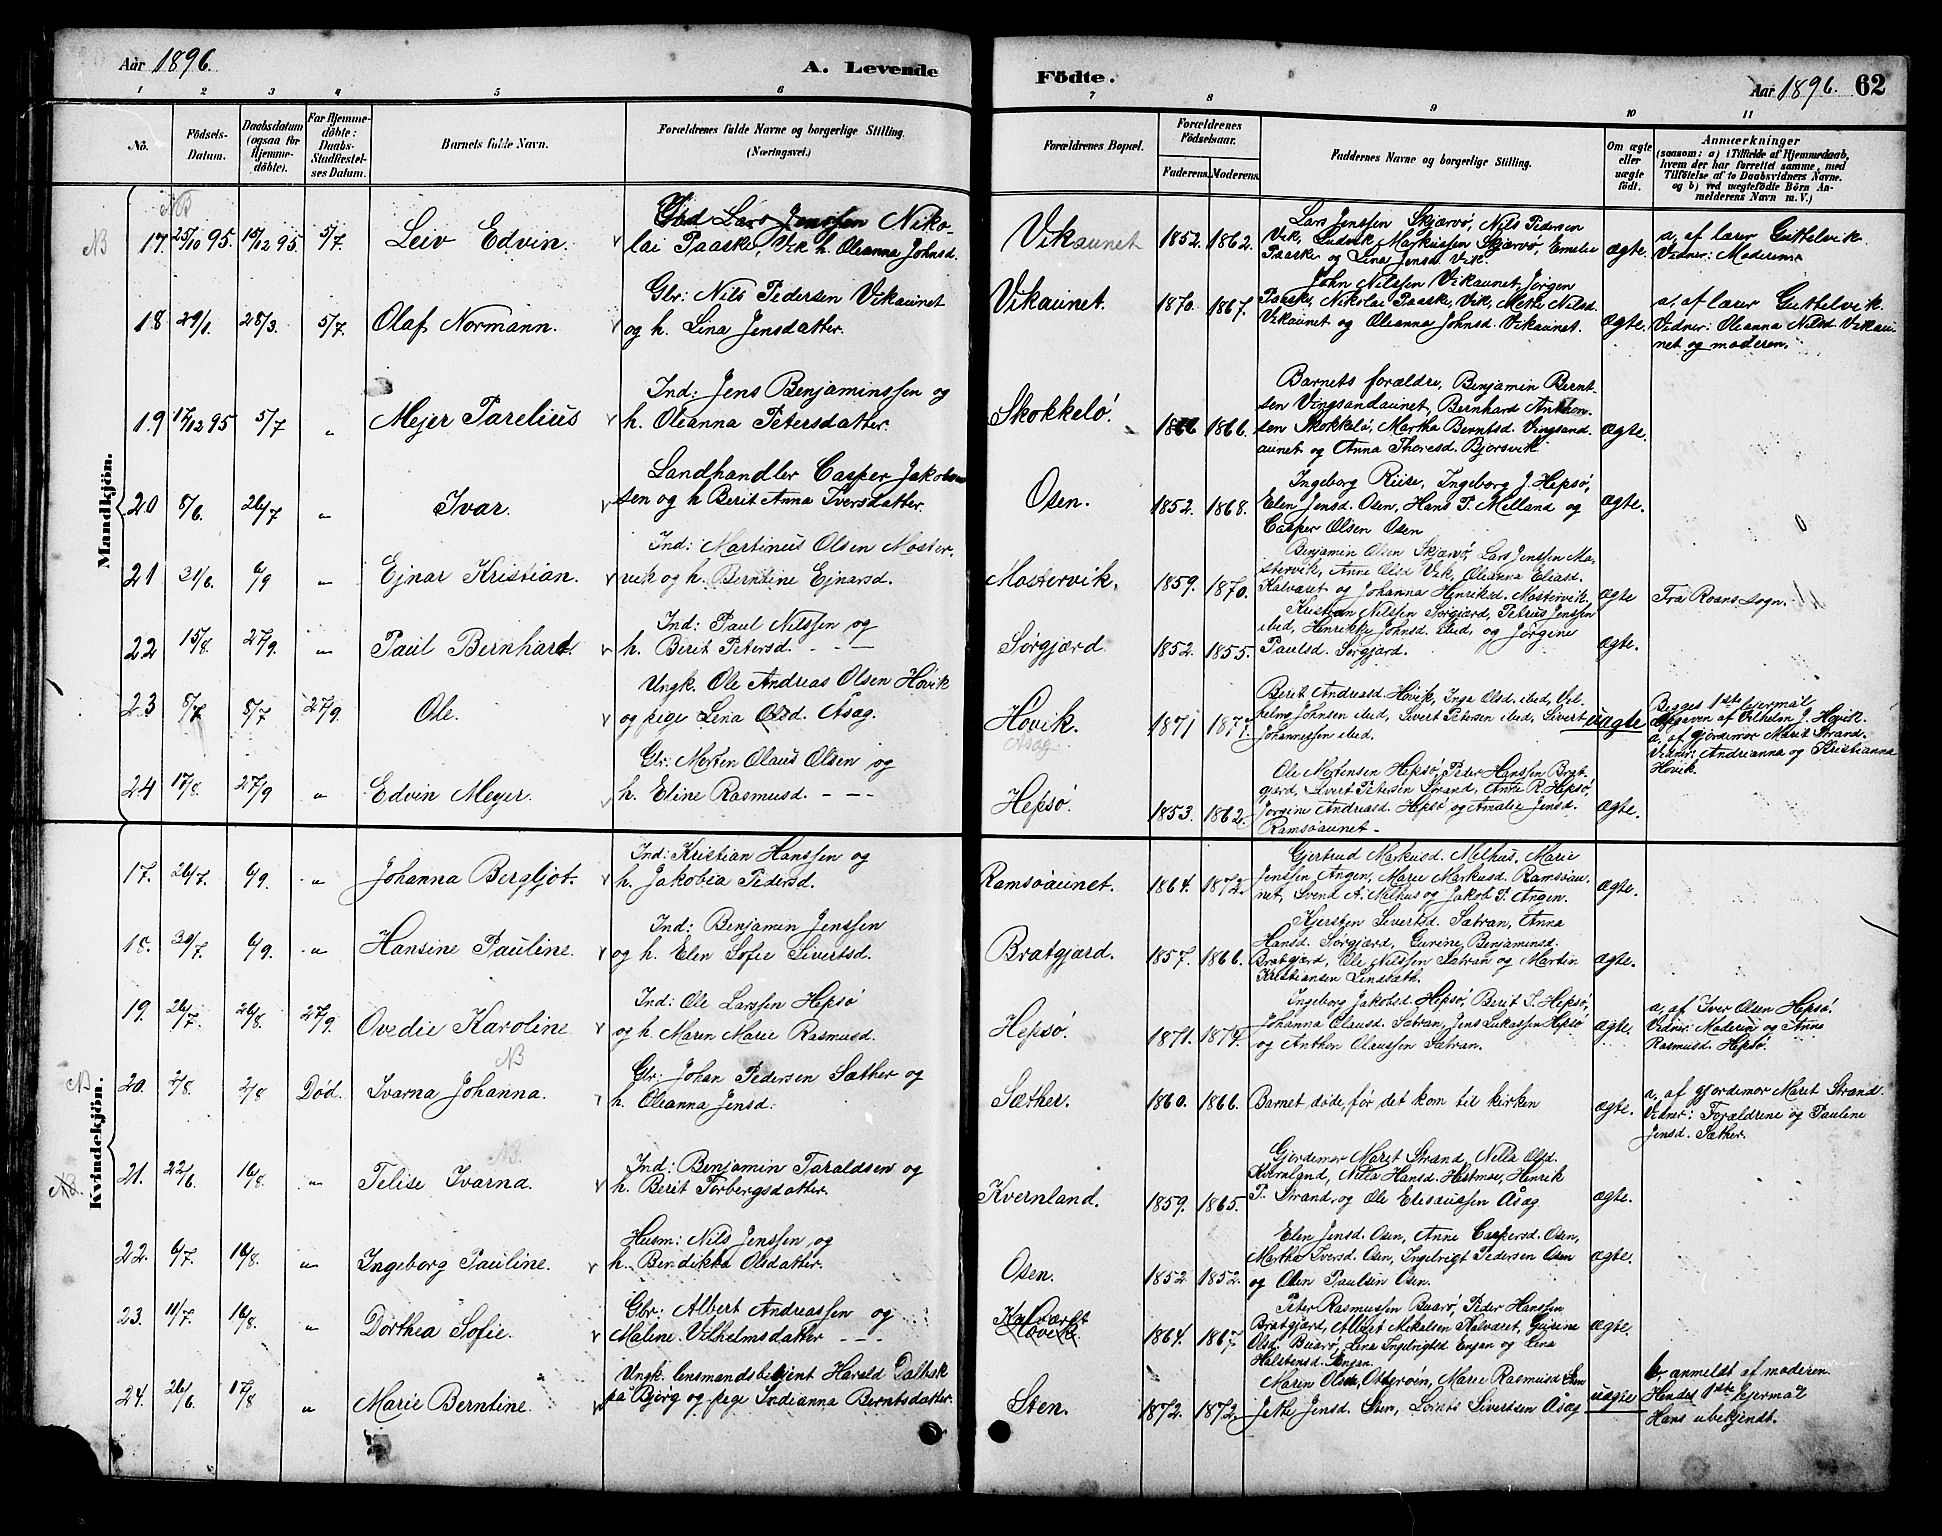 Aar 1896.
A. Levende
Födte.
Aar 1896. 62
1 2 3 4 5 6 7 8 9 10 11
No.
Födsels-Datum.
Daabsdatum (ogsaa for Hjemmedöbte).
For Hjemmedöbte: Daabs-Stadfæstelses Datum.
Barnets fulde Navn.
Forældrenes fulde Navne og borgerlige Stilling. (Næringsvei.)
Forældrenes Bopæl.
Forældrenes Födselsaar.
Faderens. Moderens.
Faddernes Navne og borgerlige Stilling.
Om ægte eller uægte födt.
Anmærkninger
(saasom: a) i Tilfælde af Hjemmedaab, hvem der har forrettet samme, med Tilföielse af to Daabsvidners Navne. og b) ved uægtefödte Börn Anmelderens Navn m. V.)
Mandkjön.
NB
17. 25/10 95. 15/12 95. 5/7. Leiv Edvin.
Gbd Lars Jenssen Niko-
lai Paaske, Vik h. Oleanna Johnsd.
Vikaunet 1852. 1862.
Lars Jenssen Skjærvö, Nils Pedersen
Vik, Ludvik Markussen Skjærvö, Emelie
Paaske og Lina Jensd. Vik.
ægte.
a, af lærer Guttelvik.
Vidner: Moderen
18 29/1. 28/3. 5/7. Olaf Normann.
Gbr: Nils Pedersen Vikaunet
og h. Lina Jensdatter.
Vikaunet. 1870. 1867.
John Nilssen Vikaunet, Jörgen
Paaske, Nikolai Paaske, Vik, Mette Nilsd.
Vikaunet og Oleanna Johnsd. Vikaunet.
ægte.
a, af lærer Guttelvik.
Vidner: Oleanna Nilsd. Vikau-
net og moderen.
19. 17/12 95 5/7 " Mejer Parelius
Ind: Jens Benjaminssen og
h. Oleanna Petersdatter.
Skokkelö. 1866 1866.
Barnets forældre, Benjamin Bernt-
sen Vingsandaunet, Bernhard Anthon-
sen Skokkelö, Martha Berntsd. Vingsand-
aunet og Anna Thoresd. Bjorsvik.
ægte.
20 8/6. 26/7 " Ivar.
Landhandler Casper Jakob
sen og h Berit Anna Iversdatter.
Osen. 1852. 1868.
Ingeborg Riise, Ingeborg J. Hepsö,
Elen Jensd. Osen, Hans P. Melland og
Casper Olsen Osen
ægte.
21 31/6. 6/9 " Ejnar Kristian.
Ind: Martinus Olsen Moster-
vik og h. Berntine Ejnarsd.
Mostervik. 1859. 1870.
Benjamin Olsen Skjærvö, Lars Jenssen Mo-
stervik, Anne Olsd Vik, Oleanna Eliasd.
Kalvaret og Johanna Henriksd. Mostervik.
ægte
Fra Roans sogn.
22 15/8. 27/9. " Paul Bernhard.
Ind: Paul Nilssen og
h. Berit Petersd. — —
Sörgjærd 1852. 1855.
Kristian Nilssen Sörgjærd, Petrus Jenssen
ibid, Henrikke Johnsd. ibid, og Jörgine
Paulsd. Sörgjærd.
ægte.
23 8/7 8/7 27/9. Ole.
Ungk. Ole Andreas Olsen Hövik
og pige Lina Olsd. Åsag.
Hövik. Åsag. 1871 1877.
Berit Andreasd. Hövik, Inga Olsd. ibid, Vil-
helm Johnsen ibid, Sivert Petersen ibid, Sivert
Johannessen ibid.
uægte
Begges 1ste leiermål
Opgaven af Vilhelm J. Hövik.
a, af gjordemor Marit Strand.
Vidner: Andrianna og Kristianna
Hövik.
24 17/8. 27/9 " Edvin Meyer.
Gbr. Morten Olaus Olsen og
h. Eline Rasmusd. — —
Hepsö. 1853. 1862.
Ole Mortensen Hepsö, Peder Hanssen Brat-
gjærd, Sivert Petersen Strand, Anne R. Hepsö,
Jorgine Andreasd. Hepsö og Amalie Jensd.
Ramsöaunet.
ægte.
Kvindekjön.
17. 26/7. 6/9. " Johanna Bergljot.
Ind: Kristian Hanssen og
h. Jakobia Pedersd.
Ramsöaunet. 1864. 1872.
Gjertrud Markusd. Melhus, Marie
Jenssen Angen, Marie Markusd. Ramsöau-
net, Svend A. Melhus og Jakob P. Angen.
ægte.
18. 30/7. 6/9. " Hansine Pauline.
Ind: Benjamin Jenssen
og h. Elen Sofie Sivertsd.
Bratgjærd. 1857. 1866.
Kjersten Sivertsd. Sætran, Anna
Hansd. Sörgjærd, Gurine Benjaminsd.
Bratgjærd, Ole Nilssen Sætran og Martin
Kristiansen
ægte.
19. 26/7. 26/8. 27/9 Ovedie Karoline
Ind: Ole Larssen Hepsö
og h. Maren Marie Rasmusd.
Hepsö. 1871. 1874.
Ingeborg Jakobsd. Hepsö, Berit S. Hepsö,
Johanna Olausd. Sætran, Jens Lukassen Hepsö
og Anthon Olaussen Sætran.
ægte.
a, af Iver Olsen Hepsö.
Vidner: Moderen og Anna
Rasmusd. Hepsö.
NB 20. 2/8. 2/8 Död. Ivarna Johanna. NB
Gbr: Johan Pedersen Sæther og
h. Oleanna Jensd.
Sæther. 1860. 1866.
Barnet döde, för det kom til kirken
ægte.
a, af gjordemor Maret Strand.
Vidner: Forældrene og Pauline
Jensd. Sæther.
NB. 21. 22/6 16/8. " Telise Ivarna. NB.
Ind: Benjamin Taraldsen og
h. Berit Torbergsdatter.
Kvernland. 1859. 1865.
Gjordemor Maret Strand, Nella Olsd.
Kvernland, Nella Hansd. Hestmo, Henrik
P. Strand, og Ole Elisæussen Åsag
ægte.
22. 6/7. 16/8. " Ingeborg Pauline.
Husm: Nils Jenssen og
h. Bendikka Olsdatter.
Osen. 1852 1852.
Elen Jensd. Osen, Anne Caspersd. Osen,
Martha Iversd. Osen, Ingebrigt Pedersen Osen
og Oten Paulsen Osen.
ægte.
23. 11/7. 16/8. " Dorthea Sofie.
Gbr: Albert Andreassen og
Maline Vilhelmsdatter — —
Kalværet Hövik. 1864. 1867
Peter Rasmussen Buarö, Peder Hanssen
Bratgjærd, Albert Mikalsen Kalvaret, Gurine
Olsd. Buarö, Lina Ingebrigtsd Engan og Lina
Halstensd. Engan.
ægte.
24. 26/6. 17/8 " Marie Berntine.
Ungk. lensmandsbetjent Harald Dalbak
på Bjorg og pige Indianna Berntsdatter.
Sten. 1872. 1872.
Maren Olsd. Marie Rasmusd Sten
Jette Jensd. Sten, Sivertsen Åsag
uægte
b. anmeldt af moderen.
Hendes 1ste leiermål
Hans ubekjendt.